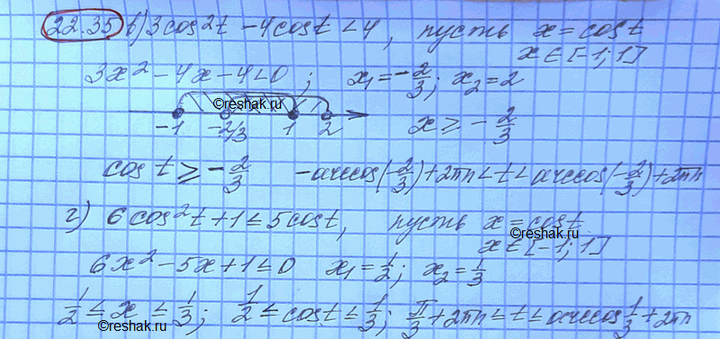 22.35 в) 3cos²t - 4cost < 4, пусть x = cost
x ∈ [-1; 1]
3x² - 4x - 4 < 0; x₁ = -2/3; x₂ = 2
©reshak.ru
-1 -2/3 1 2 x ≥ -2/3
cos t ≥ -2/3 -arccos(-2/3) + 2πn < t < arccos(-2/3) + 2πn
г) 6cos²t + 1 ≤ 5cost, пусть x = cost
©reshak.ru
x ∈ [-1; 1]
6x² - 5x + 1 ≤ 0 x₁ = 1/2; x₂ = 1/3
1/2 ≤ x ≤ 1/3; 1/2 ≤ cost ≤ 1/3; π/3 + 2πn ≤ t ≤ arccos 1/3 + 2πn
©reshak.ru